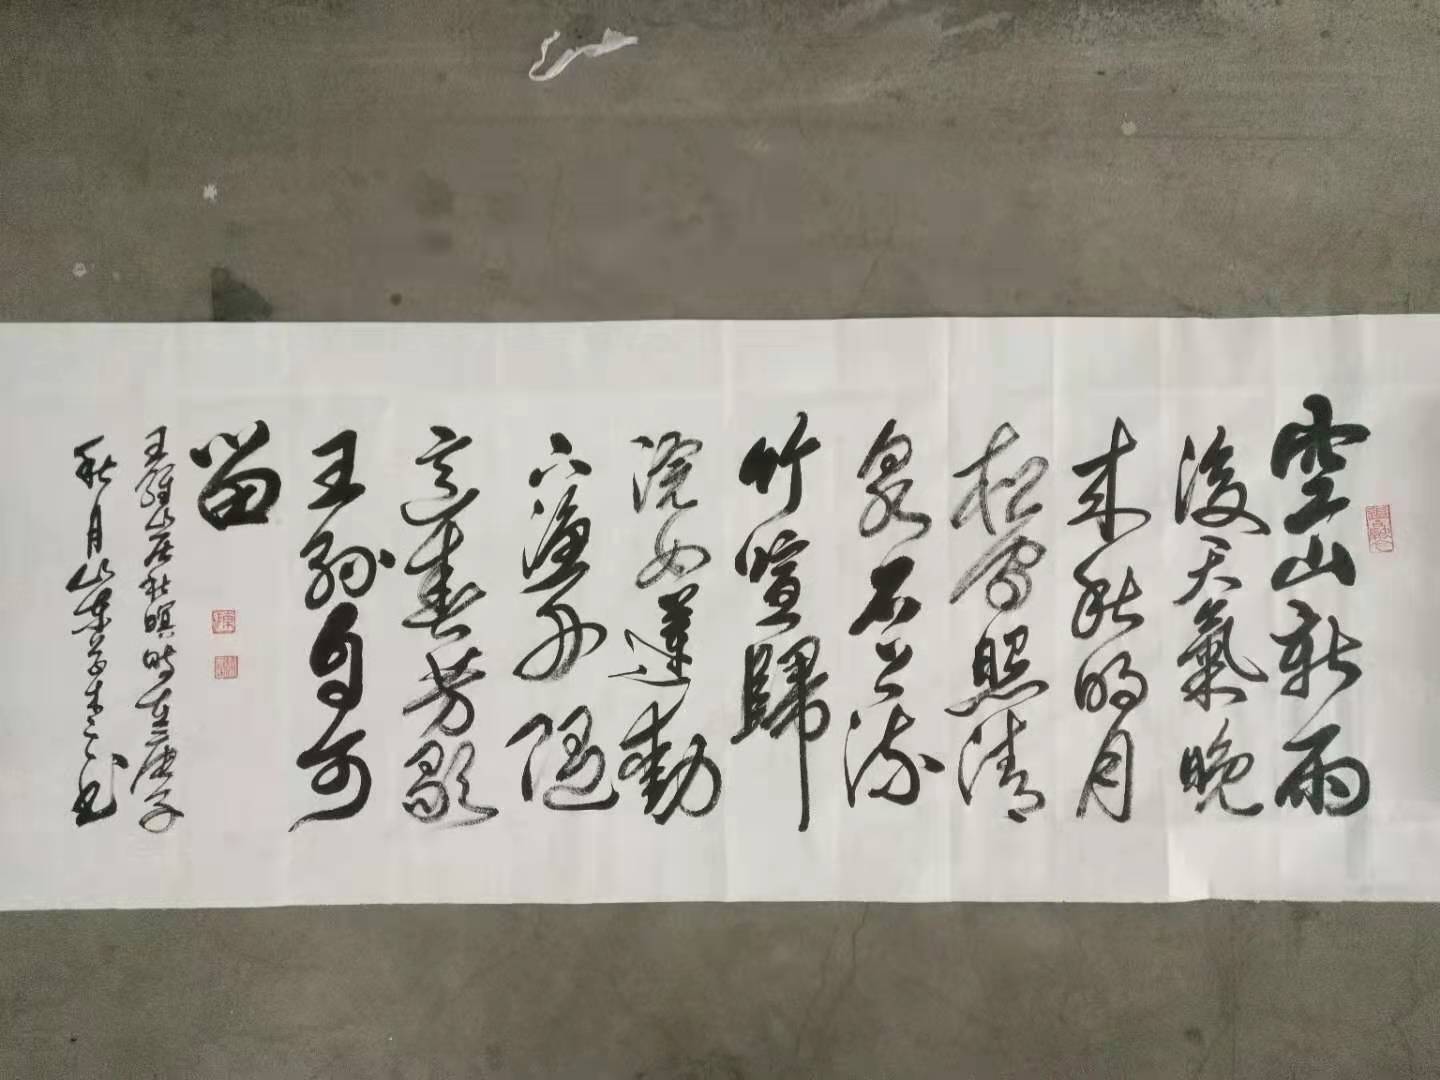 空山新雨
後天氣晚
来秋明月
松间照清
泉石上流
竹喧歸
浣女蓮動
下漁舟随
意春芳歇
王孫自可
留
王維山居秋暝時在庚子
秋月山東书